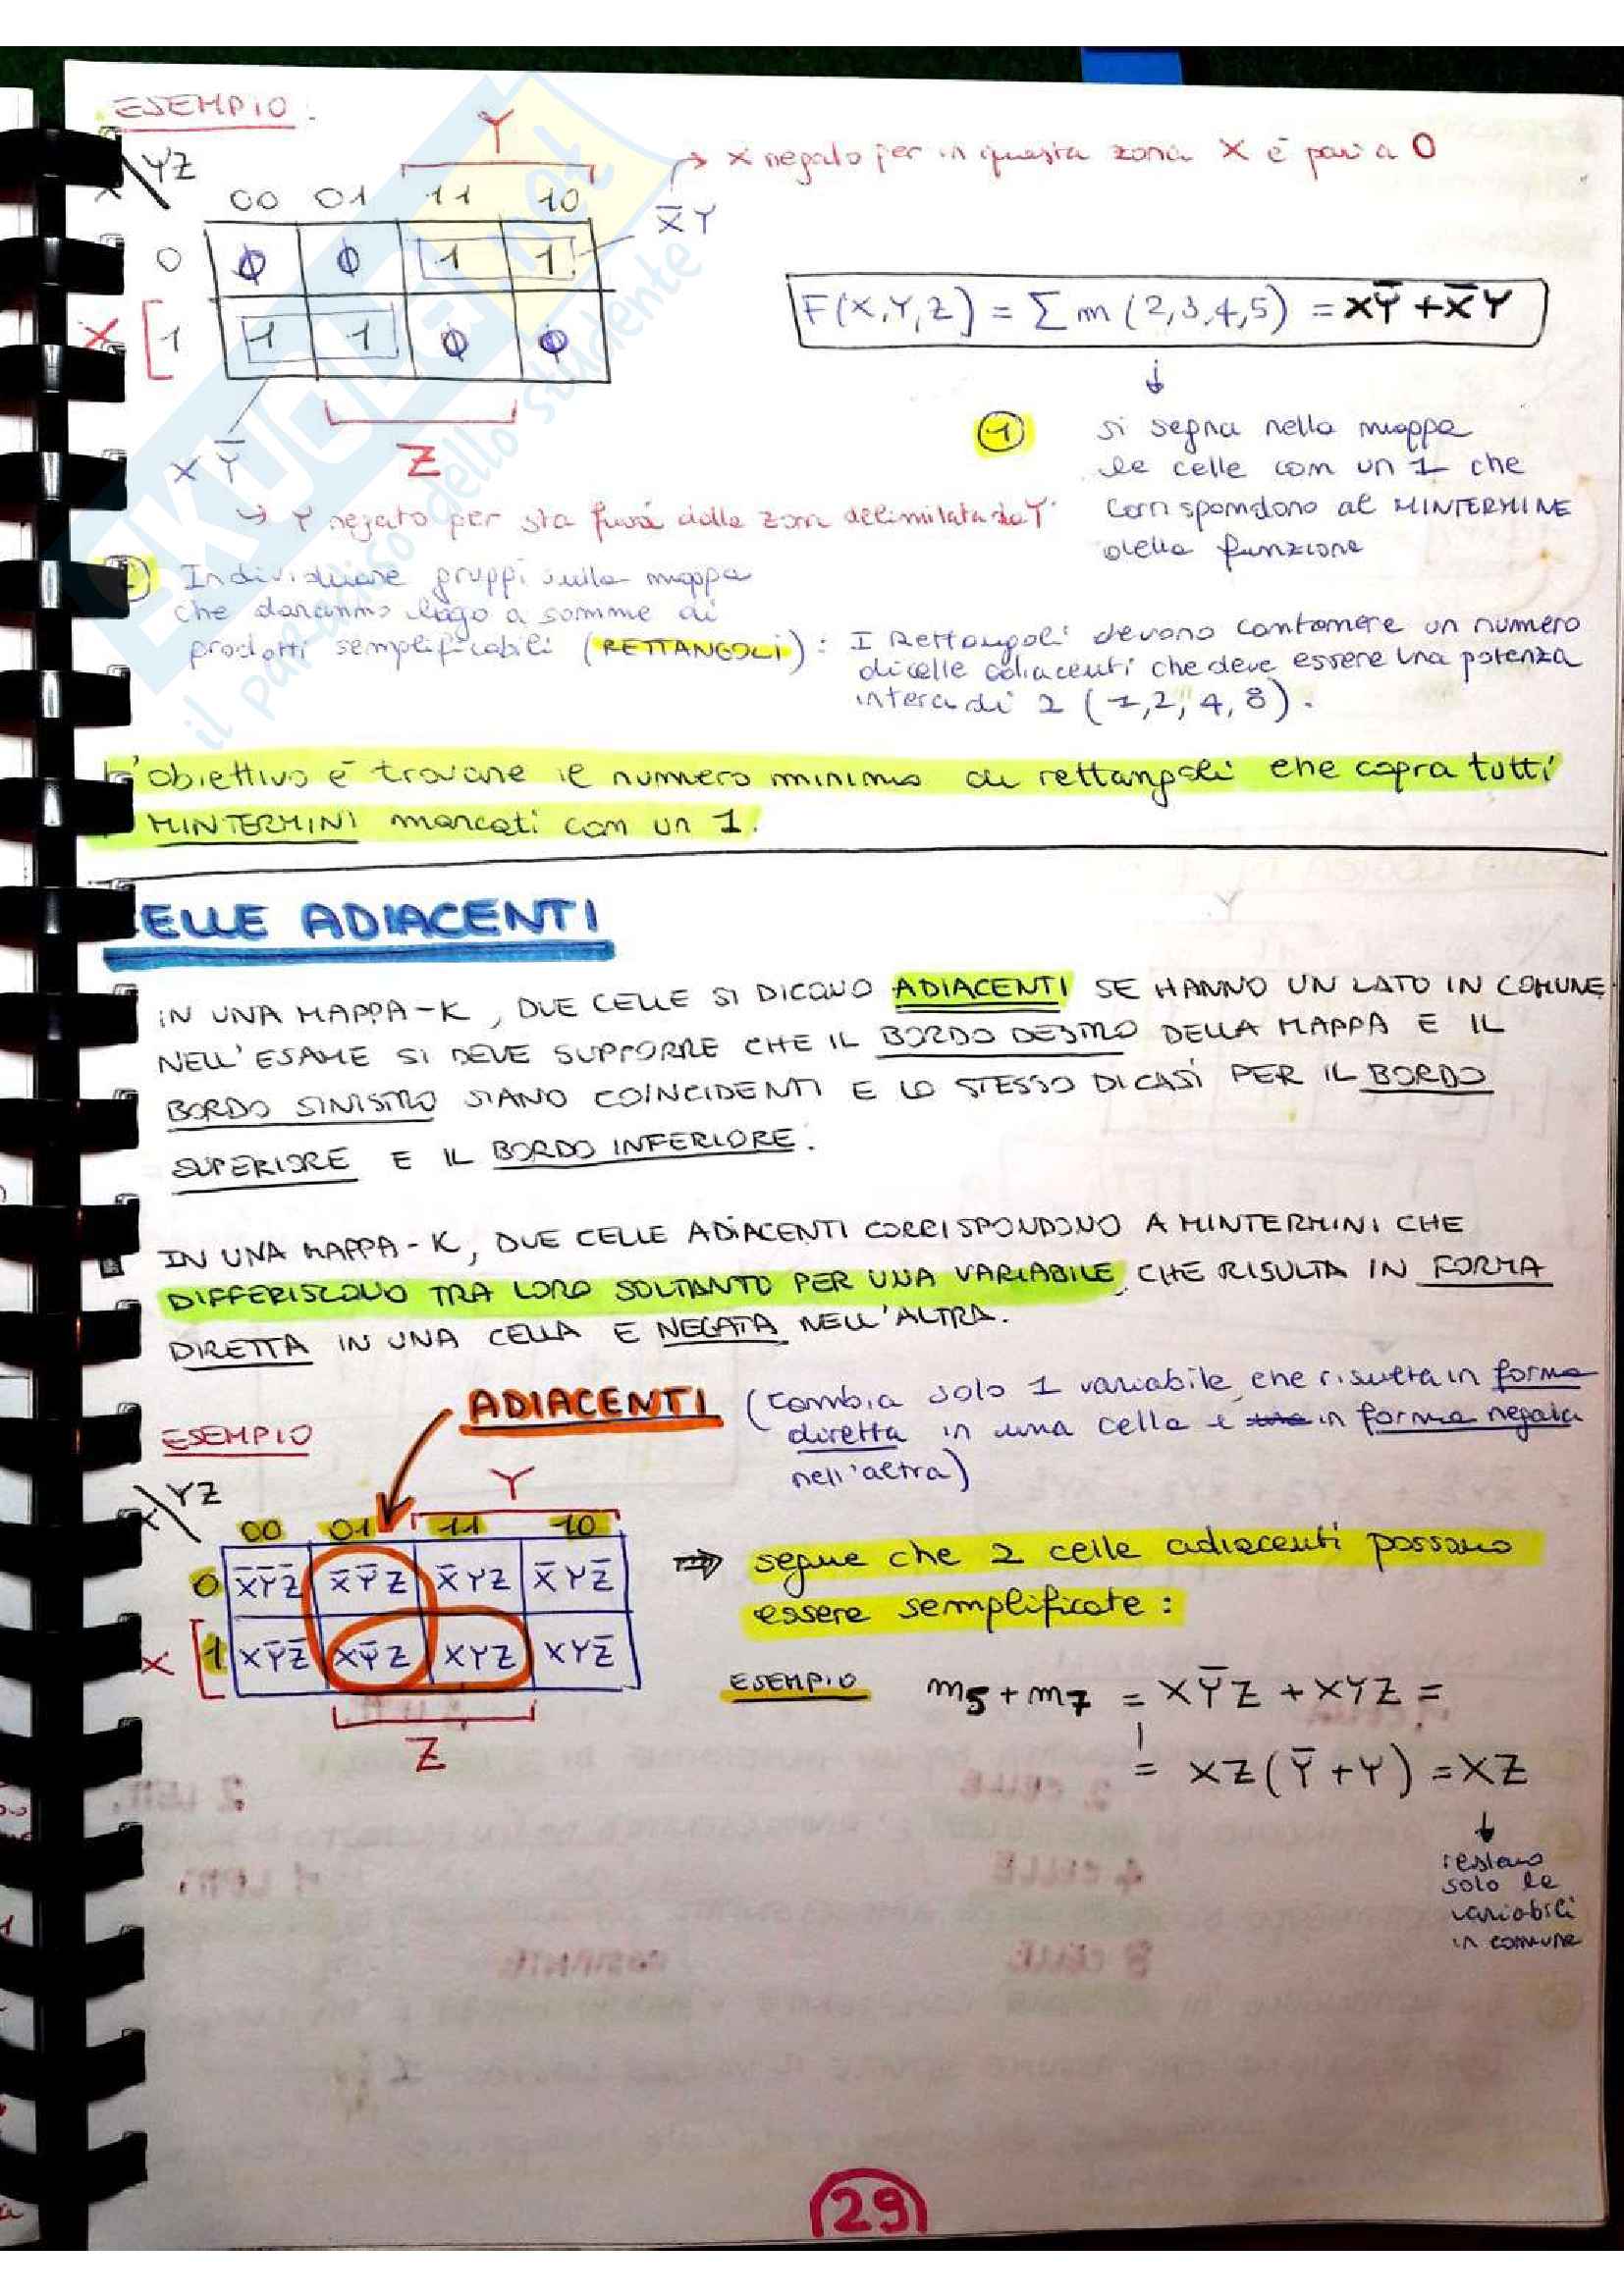 ESEMPIO:
YZ
Y
→ X negato per in questa zona X è pari a 0
00 01 11 10
X̅Y
0 ϕ ϕ 1 1
X 1 1 1 ϕ ϕ
F(X,Y,Z) = ∑ m (2,3,4,5) = XY̅ + X̅Y
Z
XY̅
→ Y negato per sta fuori dalla zona delimitata da Y
1 si segna nella mappa
le celle con un 1 che
corrispondono al MINTERMINE
della funzione
Individuare gruppi sulla mappa
che daranno logo a somme di
prodotti semplificabili (RETTANGOLI): I Rettangoli devono contenere un numero
di celle adiacenti che deve essere una potenza
intera di 2 (1,2,4,8).
'obiettivo è trovare il numero minimo di rettangoli che copra tutti
MINTERMINI marcati con un 1.
ELLE ADIACENTI
IN UNA MAPPA-K, DUE CELLE SI DICONO ADIACENTI SE HANNO UN LATO IN COMUNE.
NELL'ESAME SI DEVE SUPPORRE CHE IL BORDO DESTRO DELLA MAPPA E IL
BORDO SINISTRO SIANO COINCIDENTI E LO STESSO DICASI PER IL BORDO
SUPERIORE E IL BORDO INFERIORE.
IN UNA MAPPA-K, DUE CELLE ADIACENTI CORRISPONDONO A MINTERMINI CHE
DIFFERISCONO TRA LORO SOLTANTO PER UNA VARIABILE CHE RISULTA IN FORMA
DIRETTA IN UNA CELLA E NEGATA NELL'ALTRA.
ADIACENTI (Cambia solo 1 variabile, che risulta in forma
diretta in una cella e in forma negata
nell'altra)
ESEMPIO
X\YZ
Y
00 01 11 10
0 X̅Y̅Z̅ X̅Y̅Z X̅YZ X̅YZ̅
X 1 XY̅Z̅ XY̅Z XYZ XYZ̅
Z
⇒ segue che 2 celle adiacenti possono
essere semplificate:
ESEMPIO m5 + m7 = XY̅Z + XYZ =
= XZ(Y̅+Y) = XZ
↓
restano
solo le
variabili
in comune
29
SKUOLA.net
il paradiso dello studente